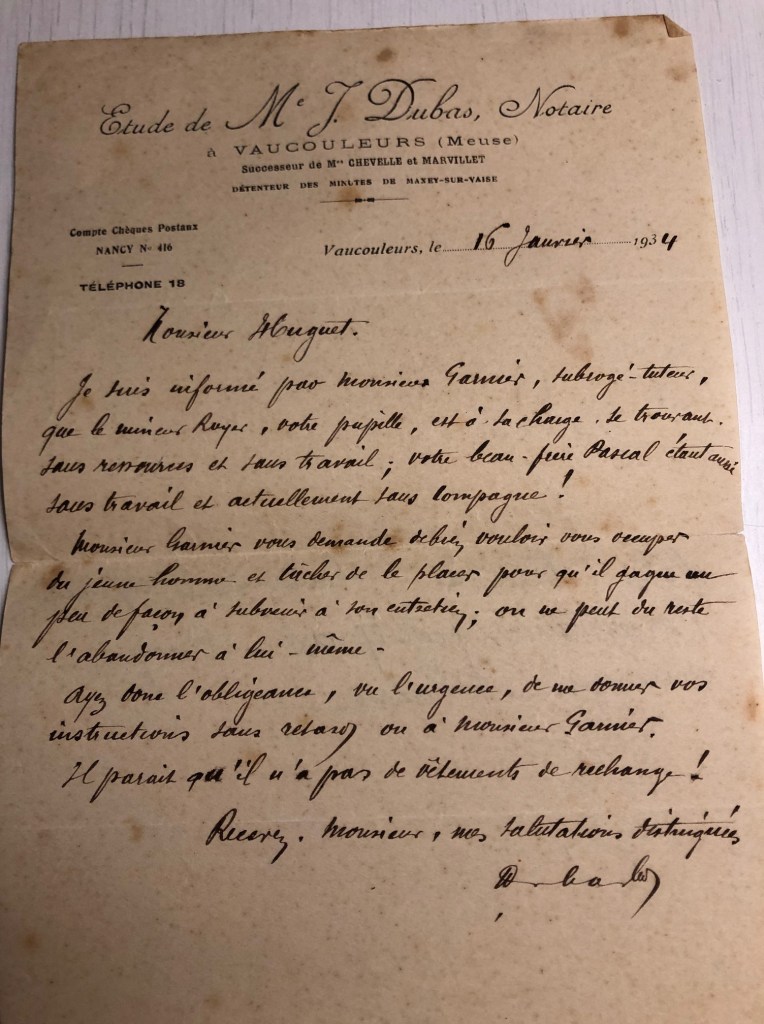 Etude de Me J. Dubas, Notaire
à VAUCOULEURS (Meuse)
Successeur de Mes CHEVELLE et MARVILLET
DÉTENTEUR DES MINUTES DE MAXEY-SUR-VAISE
Compte Chèques Postaux
NANCY No 416
TÉLÉPHONE 18
Vaucouleurs, le 16 Janvier 1934
Monsieur Huguet.
Je suis informé par Monsieur Garnier, subrogé-tuteur,
que le mineur Royer, votre pupille, est à sa charge. se trouvant.
sans ressources et sans travail; votre beau-frère Pascal étant aussi
sans travail et actuellement sans compagne!
Monsieur Garnier vous demande de bien vouloir vous occuper
du jeune homme et tâcher de le placer pour qu'il gagne un
peu de façon à subvenir à son entretien; on ne peut du reste
l'abandonner à lui-même-
Ayez donc l'obligeance, vu l'urgence, de me donner vos
instructions sans retard ou à Monsieur Garnier.
Il parait qu'il n'a pas de vêtements de rechange!
Recevez. Monsieur, mes salutations distinguées